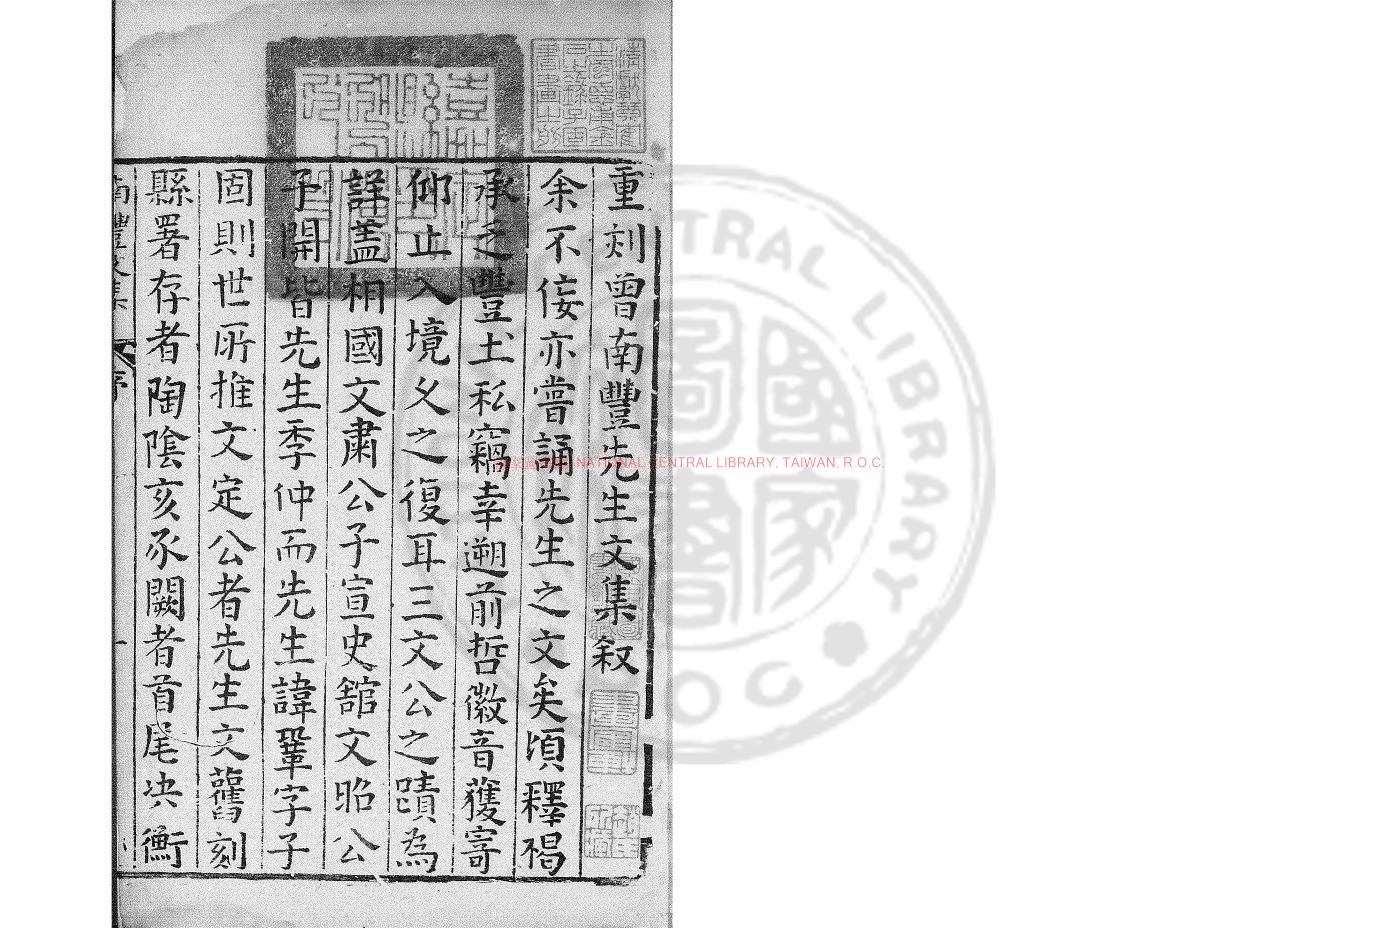 重刻曾南豐先生文集叙
余不佞亦嘗誦先生之文矣頃釋褐
承乏豐土私竊幸遡前哲徽音獲寄
仰止入境乂之復耳三文公之蹟為
詳盖相國文肅公子宣史舘文昭公
子開皆先生季仲而先生諱鞏字子
固則世所推文定公者先生文舊刻
縣署存者陶陰亥豕闕者首尾决衡
南豐文集
序
一
NATIONAL CENTRAL LIBRARY, TAIWAN, R.O.C.
CENTRAL LIBRARY